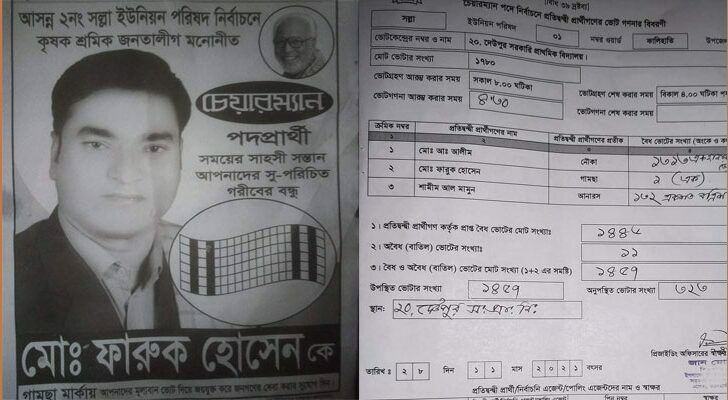 আসন্ন ২নং সল্লা ইউনিয়ন পরিষদ নির্বাচনে
কৃষক শ্রমিক জনতালীগ মনোনীত
চেয়ারম্যান
পদপ্রার্থী
সময়ের সাহসী সন্তান
আপনাদের সু-পরিচিত
গরীবের বন্ধু
মোঃ ফারুক হোসেন কে
গামছা মার্কায় আপনাদের মূল্যবান ভোট দিয়ে জয়যুক্ত করে জনগণের সেবা করার সুযোগ দিন।
চেয়ারম্যান পদে নির্বাচনে প্রতিদ্বন্দ্বী প্রার্থীগণের ভোট গণনার বিবরণী
সল্লা ইউনিয়ন পরিষদ ০১ নম্বর ওয়ার্ড কালিহাতি উপজে
ভোটকেন্দ্রের নম্বর ও নাম ২০. দেউপুর সরকারি প্রাথমিক বিদ্যালয়।
মোট ভোটার সংখ্যা ১৭৮০
ভোটগ্রহণ আরম্ভ করার সময় সকাল ৮.০০ ঘটিকা ভোটগ্রহণ শেষ করার সময় বিকাল ৪.০০ ঘটিকা
ভোটগণনা আরম্ভ করার সময় ৪:৩০ ভোটগণনা শেষ করার সময়
ক্রমিক নম্বর প্রতিদ্বন্দ্বী প্রার্থীগণের নাম প্রতিদ্বন্দ্বী প্রার্থীগণের প্রতীক বৈধ ভোটের সংখ্যা (অংকে ও কথ
১ ২ ৩ ৪
১ মোঃ আঃ আলীম নৌকা
২ মোঃ ফারুক হোসেন গামছা ১ (এক)
৩ শামীম আল মামুন আনারস ১৭২ একশত
১। প্রতিদ্বন্দ্বী প্রার্থীগণ কর্তৃক প্রাপ্ত বৈধ ভোটের মোট সংখ্যাঃ
২। অবৈধ (বাতিল) ভোটের সংখ্যাঃ ১১
৩। বৈধ ও অবৈধ (বাতিল) ভোটের মোট সংখ্যা (১+২ এর সমষ্টি)
উপস্থিত ভোটার সংখ্যা অনুপস্থিত ভোটার সংখ্যা
স্থান: ২০, দেউপুর সঃ প্রাঃ বিঃ
প্রিজাইডিং অফিসারের স্বাক্ষর
তারিখ : ২ ৮ দিন ১ ১ মাস ২ ০ ২ ১ বৎসর
প্রতিদ্বন্দ্বী প্রার্থী/নির্বাচনি এজেন্ট/পোলিং এজেন্টদের নাম ও স্বাক্ষর